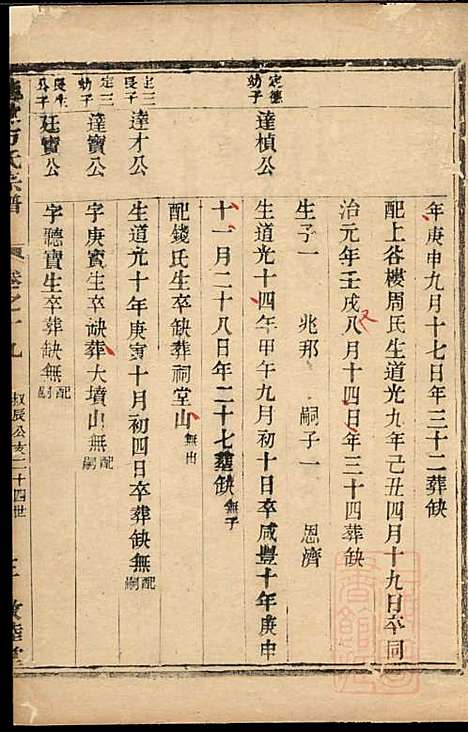 年庚申九月十七日年三十二葬缺
配上谷樓周氏生道光九年己丑四月十九日卒同
治元年壬戌八月十四日年三十四葬缺
生子一 兆邦 嗣子一 恩濟
定德
幼子
達楨公
生道光十四年甲午九月初十日卒咸豐十年庚申
十一月二十八日年二十七葬缺無子
配錢氏生卒缺葬祠堂山無出
定三
長子
達才公
生道光十年庚寅十月初四日卒葬缺無配嗣
定三
幼子
達寶公
字庚寅生卒缺葬大墳山無配嗣
公子
廷寶公
字聽寶生卒葬缺無配嗣
氏宗譜
卷之十九
叔辰公亥二十四世
三
敦睦堂